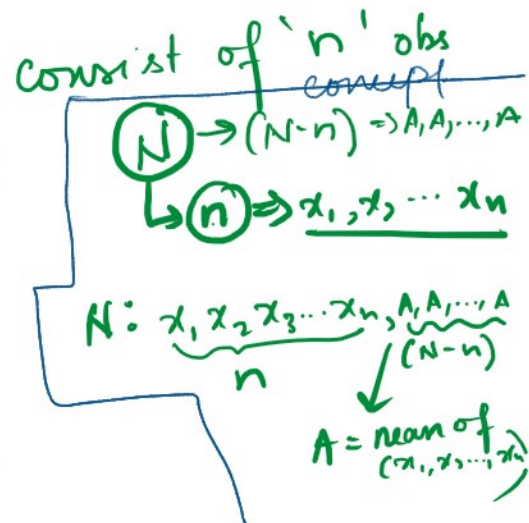 consist of 'n' obs
concept
N → (N-n) ⇒ A, A, ..., A
n ⇒ x₁, x₂ ... xₙ
N: x₁ x₂ x₃ ... xₙ, A, A, ..., A
n (N-n)
A = mean of
(x₁, x₂, ..., xₙ)